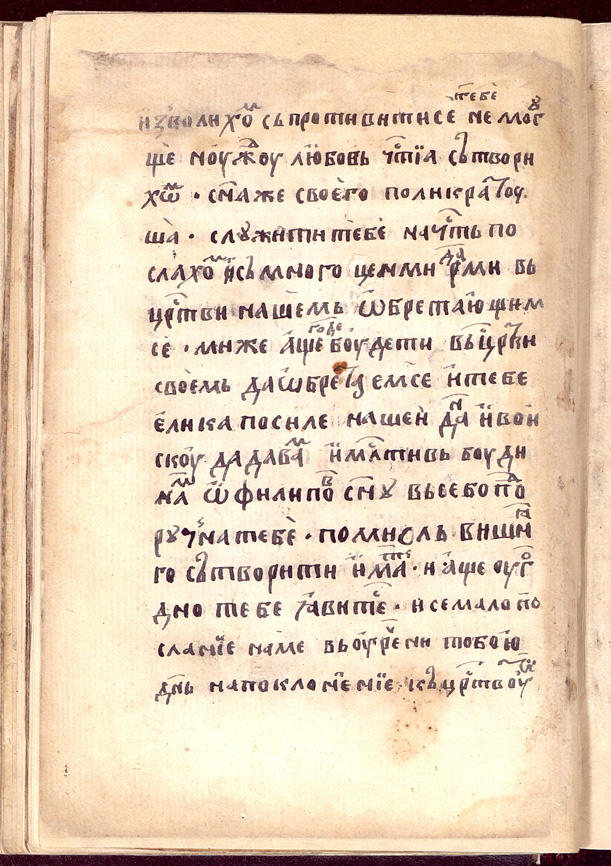 изволихѡⷨ съпротивитисе тебѐ не мог
ще моужоу любовь чтⷭ҇їа сътвори
хѡⷨ · сн҃а же своего поликратоу
ша · слꙋжити тебе начеть по
слахоⷨ и съ многоцеⷩ҇ними дарми въ
црⷭ҇тви нашемь ѡбретающим
се · ми же аще годе боудети въ црⷭ҇тви
своемь да ѡбретаемсе и тебе
елика по силе нашеи даⷩ и вои
скоу да даваⷨ и млⷭ҇тивь боуди
наⷨ ѿ филипоⷡ сн҃ꙋ въсебо поⷣ
рꙋчⷩ҇а тебѐ · помисль вишнⷨ҇а
го сътворити има · и аще оугоⷣ
дно тебе ꙗвитсе · и се мало по
сланїе наме въ оурⷱ҇ени тобою
дн҃ь на поклонѥнїе къ црⷭ҇твоу